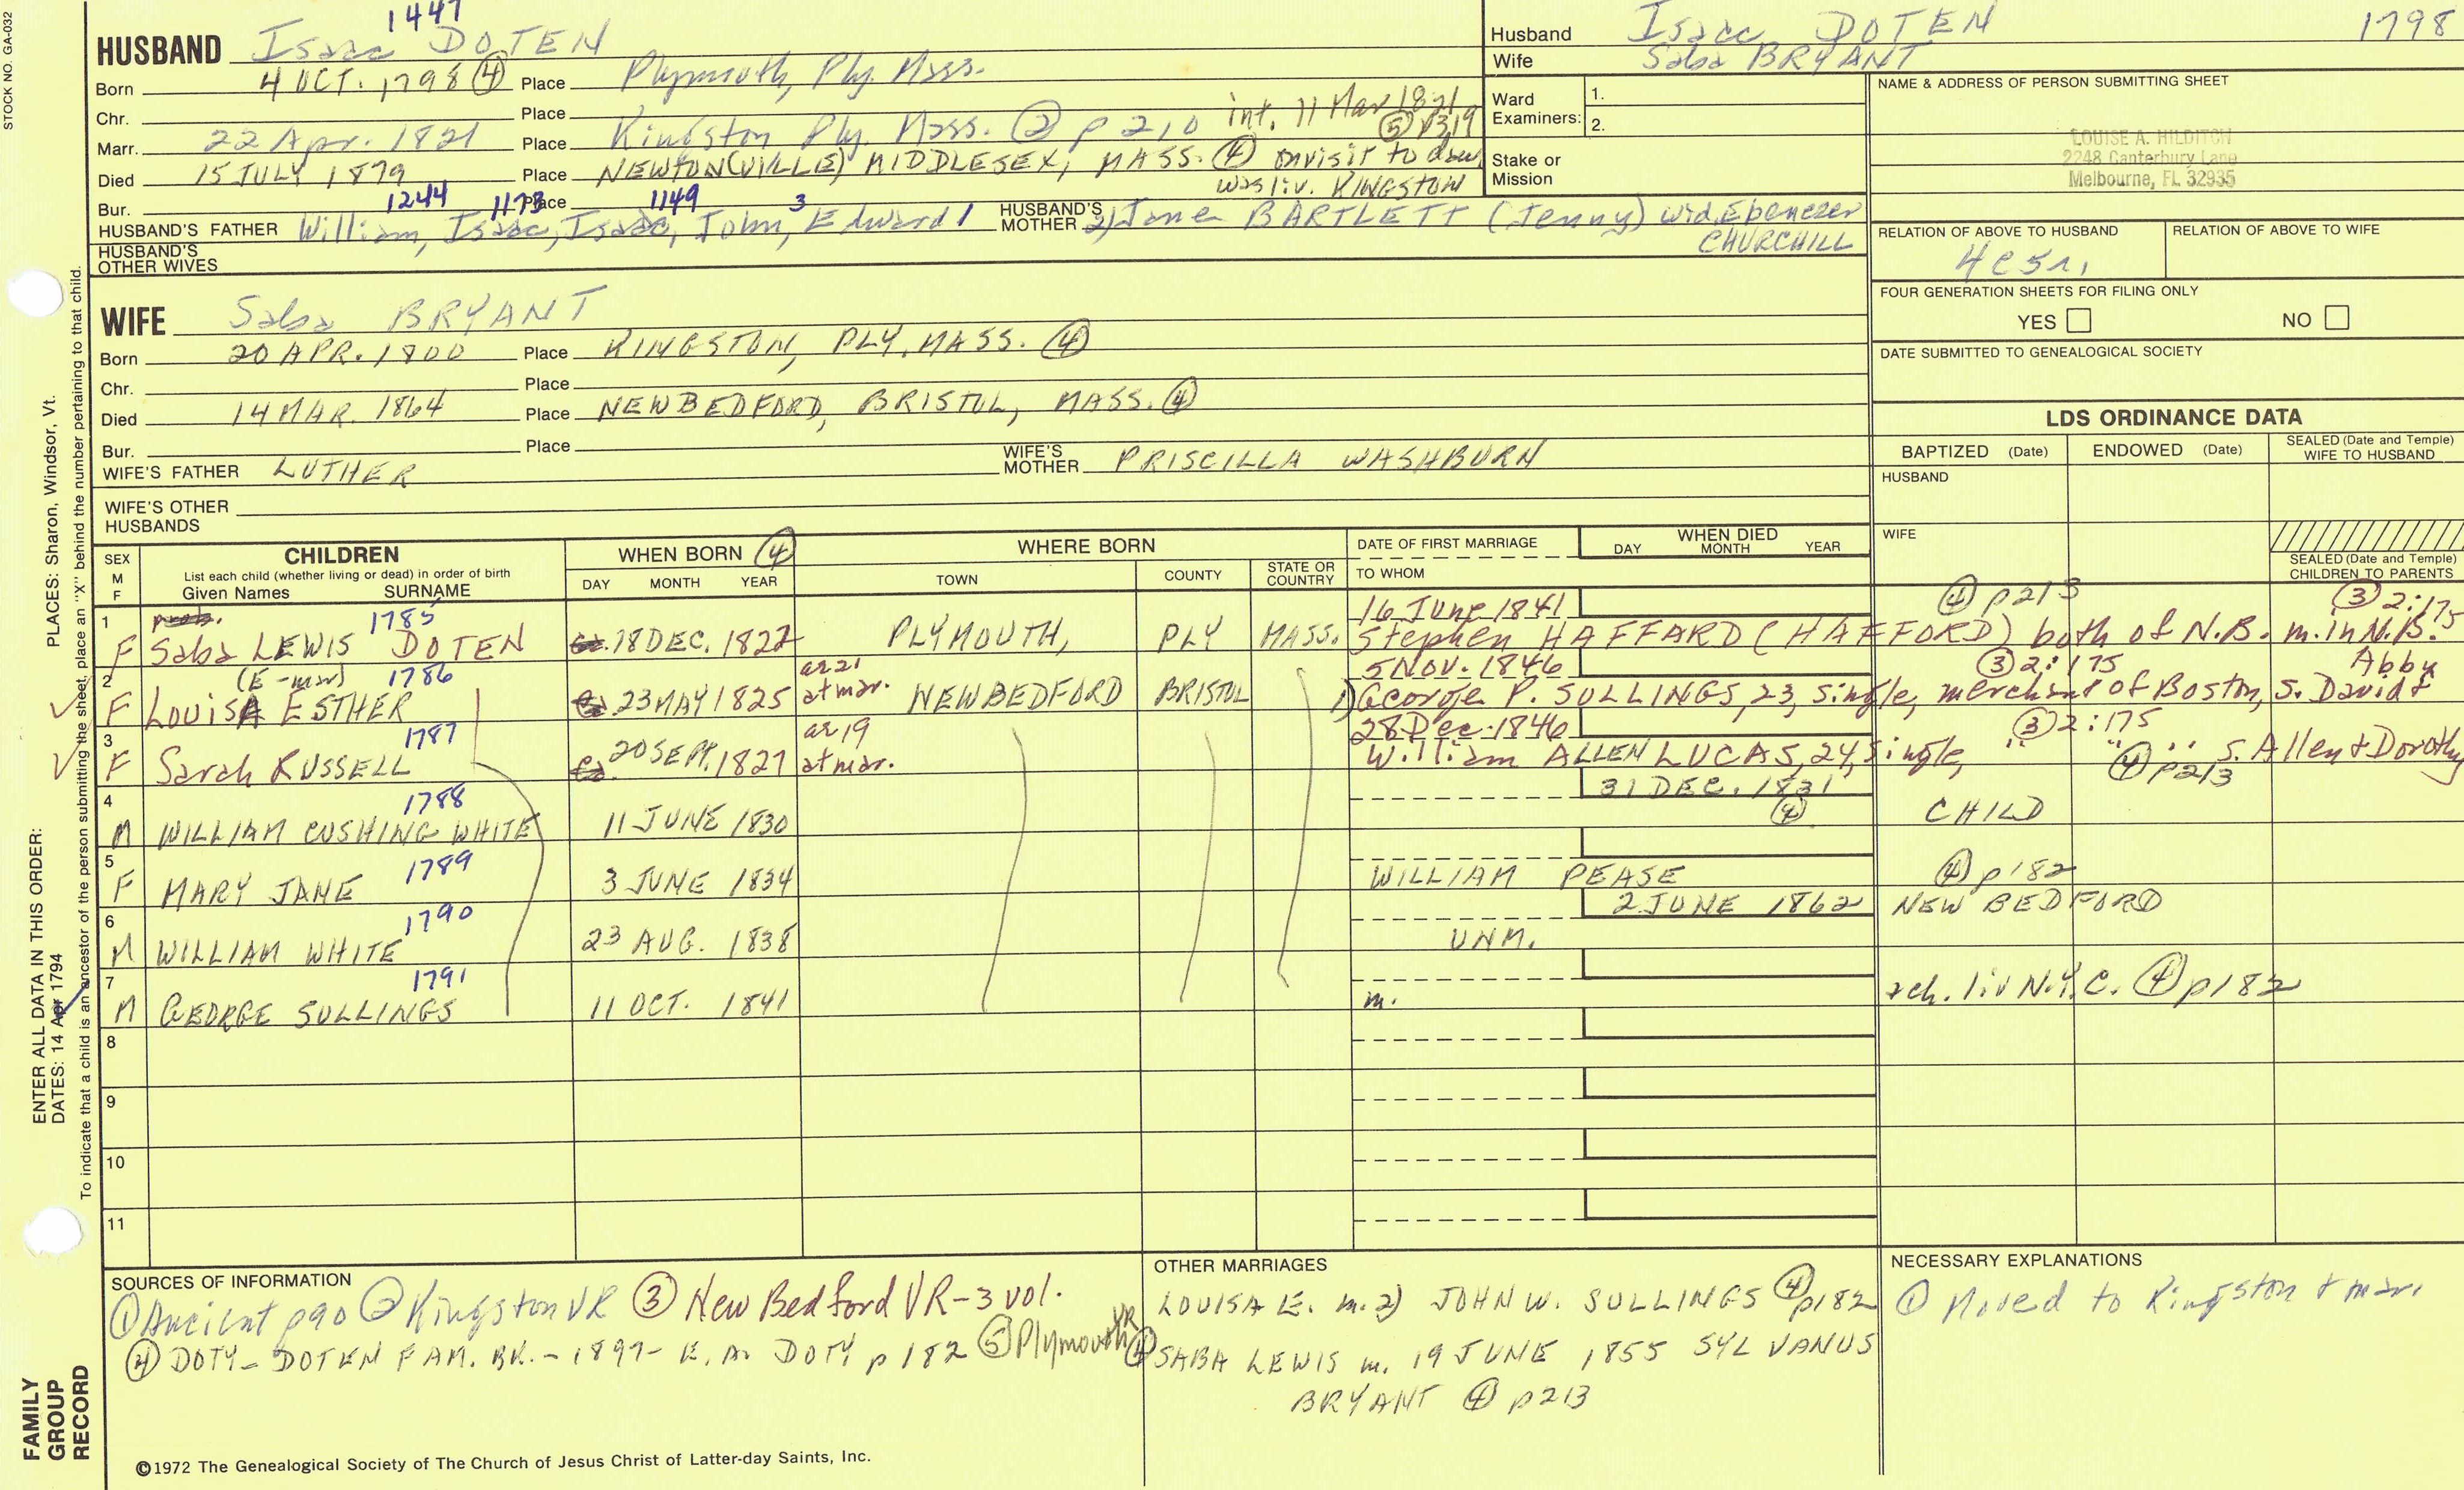 STOCK NO. GA-032
1447
HUSBAND Isaac DOTEN
Born 4 OCT. 1798 ④ Place Plymouth, Ply. Mass.
Chr. Place
int. 11 Mar 1821
⑤ p319
Marr. 22 Apr. 1821 Place Kingston Ply. Mass. ② p 210
Died 15 JULY 1879 Place NEWTON(VILLE) MIDDLESEX, MASS. ④ on visit to dau
was liv. KINGSTON
Bur. Place
1244 1173 1149 3
HUSBAND'S FATHER William, Isaac, Isaac, John, Edward 1 HUSBAND'S MOTHER 2) Jane BARTLETT (Jenny) wid. Ebenezer
CHURCHILL
HUSBAND'S OTHER WIVES
WIFE Saba BRYANT
Born 20 APR. 1800 Place KINGSTON, PLY. MASS. ④
Chr. Place
Died 14 MAR. 1864 Place NEW BEDFORD, BRISTOL, MASS. ④
Bur. Place
WIFE'S FATHER LUTHER WIFE'S MOTHER PRISCILLA WASHBURN
WIFE'S OTHER HUSBANDS
Husband Isaac DOTEN 1798
Wife Saba BRYANT
Ward Examiners: 1.
2.
Stake or Mission
NAME & ADDRESS OF PERSON SUBMITTING SHEET
LOUISE A. HILDITCH
2248 Canterbury Lane
Melbourne, FL 32935
RELATION OF ABOVE TO HUSBAND RELATION OF ABOVE TO WIFE
4c5r.
FOUR GENERATION SHEETS FOR FILING ONLY
YES NO
DATE SUBMITTED TO GENEALOGICAL SOCIETY
LDS ORDINANCE DATA
BAPTIZED (Date) ENDOWED (Date) SEALED (Date and Temple) WIFE TO HUSBAND
HUSBAND
WIFE
SEALED (Date and Temple) CHILDREN TO PARENTS
SEX M F
CHILDREN
List each child (whether living or dead) in order of birth
Given Names SURNAME
WHEN BORN ④
DAY MONTH YEAR
WHERE BORN
TOWN COUNTY STATE OR COUNTRY
DATE OF FIRST MARRIAGE
TO WHOM
WHEN DIED
DAY MONTH YEAR
1 prob. 1785 16 June 1841 ④ p213 ③ 2:175
F Saba LEWIS DOTEN ca. 18 DEC. 1822 PLYMOUTH, PLY MASS. Stephen HAFFARD (HAFFORD) both of N.B. m. in N.B.
2 (E-mar) 1786 ae 21 5 NOV. 1846 ③ 2:175 Abby
F LOUISA ESTHER ca. 23 MAY 1825 at mar. NEW BEDFORD BRISTOL 1) George P. SULLINGS, 23, single, merchant of Boston, s. David &
3 1787 ae 19 28 Dec. 1846 ③ 2:175
F Sarah RUSSELL ca. 20 SEPT. 1827 at mar. William ALLEN LUCAS, 24, single, " " " s. Allen & Dorothy
④ p213
4 1788 31 DEC. 1831 ④
M WILLIAM CUSHING WHITE 11 JUNE 1830 CHILD
5 1789 ④ p182
F MARY JANE 3 JUNE 1834 WILLIAM PEASE
6 1790 2 JUNE 1862 NEW BEDFORD
M WILLIAM WHITE 23 AUG. 1838 UNM.
7 1791
M GEORGE SULLINGS 11 OCT. 1841 m. 2ch. liv N.Y.C. ④ p182
8
9
10
11
SOURCES OF INFORMATION
① Ancient p90 ② Kingston VR ③ New Bedford VR-3 vol.
④ DOTY-DOTEN FAM. BK.-1897- E.A. DOTY p 182 ⑤ Plymouth VR
OTHER MARRIAGES
LOUISA E. m. 2) JOHN W. SULLINGS ④ p182
① SABA LEWIS m. 19 JUNE 1855 SYLVANUS
BRYANT ④ p213
NECESSARY EXPLANATIONS
① Moved to Kingston & mar.
©1972 The Genealogical Society of The Church of Jesus Christ of Latter-day Saints, Inc.
FAMILY GROUP RECORD
ENTER ALL DATA IN THIS ORDER:
DATES: 14 Apr 1794
PLACES: Sharon, Windsor, Vt.
To indicate that a child is an ancestor of the person submitting the sheet, place an "X" behind the number pertaining to that child.